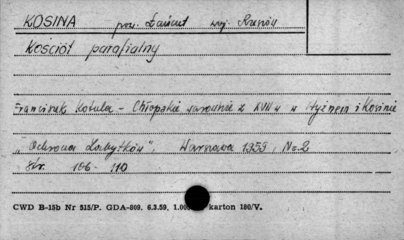 KOSINA pow. Łańcut woj. Rzeszów
Kościół parafialny
Franciszek Kotula - Chłopskie w XVII w w Hyżnem i Kosinie
"Ochrona Zabytków", Warszawa 1959, No. 2
Str. 106 - 110
CWD B-15b Nr 515/P. GDA-809. 6.3.59. 1.00 karton 180/V.